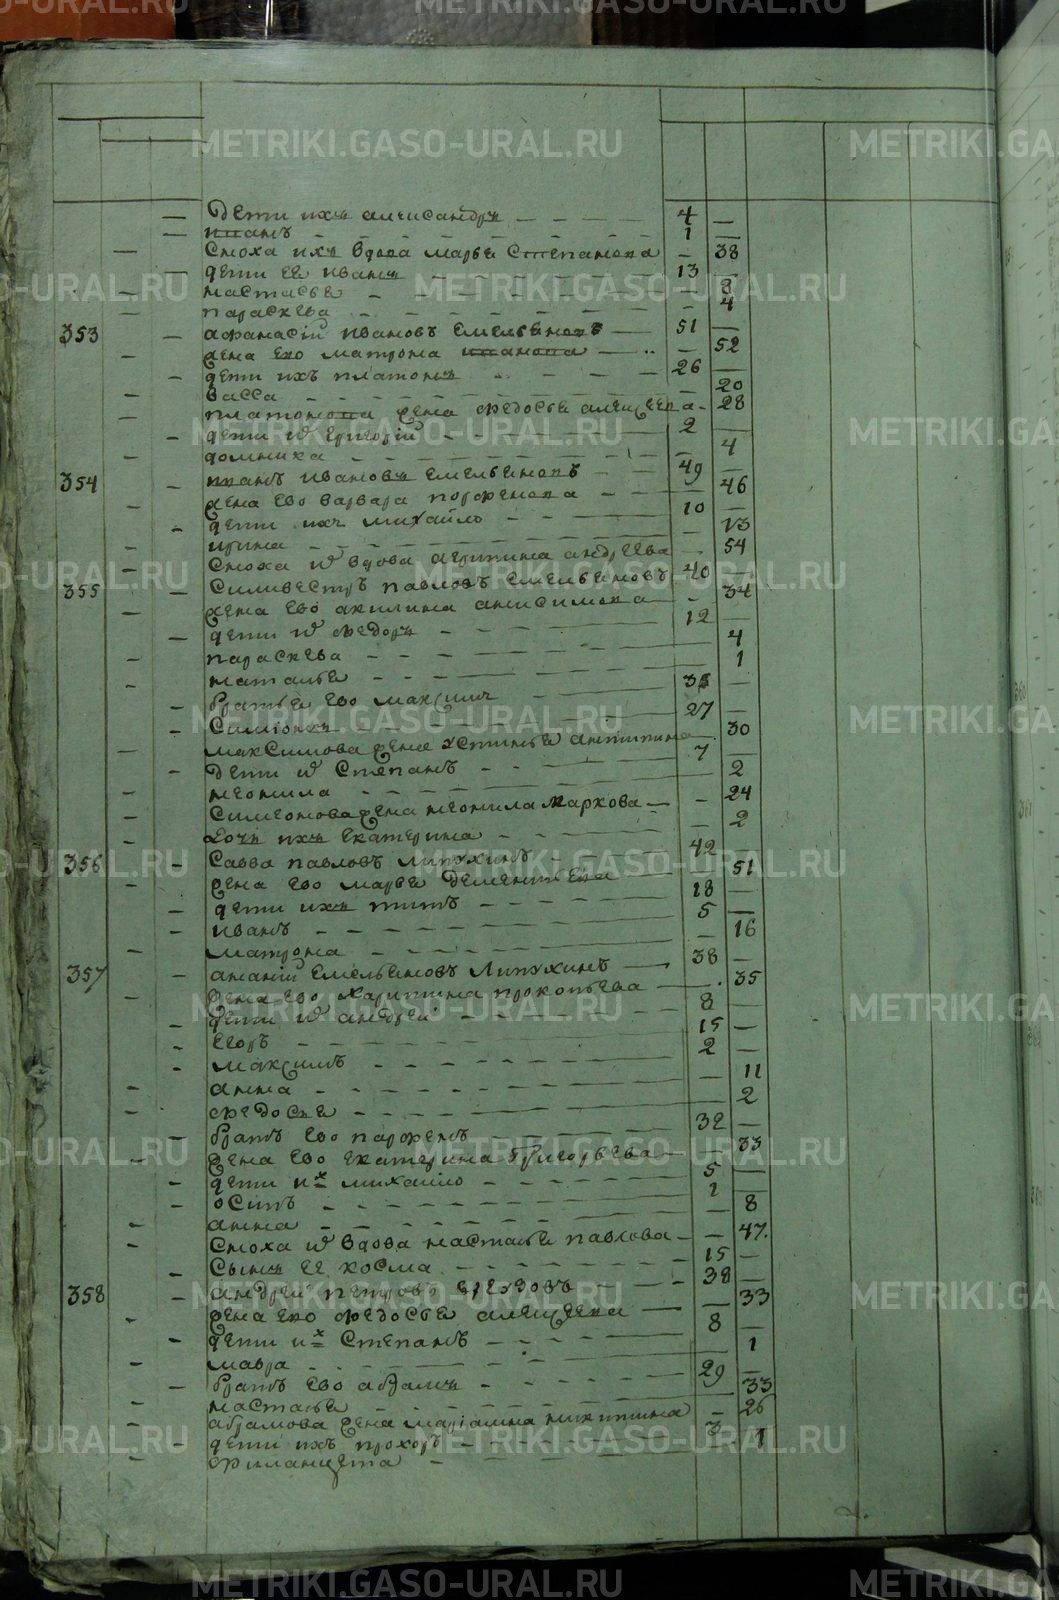 METRIKI.GASO-URAL.RU
Дети ихъ александръ — 4 —
иванъ — 1 —
сноха ихъ вдова марья степанова — 38
дети ее иванъ — 13 —
настасья — 8
параскева — 4
353 афанасій ивановъ емельяновъ — 51 —
жена ево матрона иванова — 52
дети ихъ платонъ — 26 —
васса — 20
платонова жена федосья алексеева — 28
дети их григорій — 2 —
домника — 4
354 иванъ ивановъ емельяновъ — 49 —
жена ево варвара парфенова — 46
дети ихъ михайло — 10 —
ирина — 13
сноха их вдова агрипина андреева — 54
355 Силивестръ павловъ емельяновъ 40 —
жена ево акилина анисимова — 34
дети их федоръ — 12 —
параскева — 4
наталья — 1
братья ево максимъ —
Симіонъ — 27 —
максимова жена устинья антипина — 30
дети их Степанъ — 7
неонила — 2
симеонова жена неонила маркова — 24
дочь ихъ екатерина — 2
356 Савва павловъ липухинъ — 42
жена ево марья дементьева — 51
дети ихъ титъ — 18 —
иванъ — 5 —
матрона — 16
357 ананій емельяновъ липухинъ — 38 —
жена ево харитина прокопьева — 35
дети их андрей — 8 —
егоръ — 15 —
максимъ — 2 —
анна — 11
федосья — 2
братъ ево парфенъ — 32 —
жена ево екатерина григорьева — 33
дети их михайло — 5 —
осипъ — 1
анна — 8
сноха их вдова настасья павлова — 47.
сынъ ее косма — 15 —
358 андрей петровъ — 38 —
жена ево федосья алексеева — 33
дети их степанъ — 8 —
мавра — 1
братъ ево абрамъ — 29 —
настасья — 33
абрамова жена маріамна никитина — 26
дети ихъ прохоръ — 3
филанцета — 1